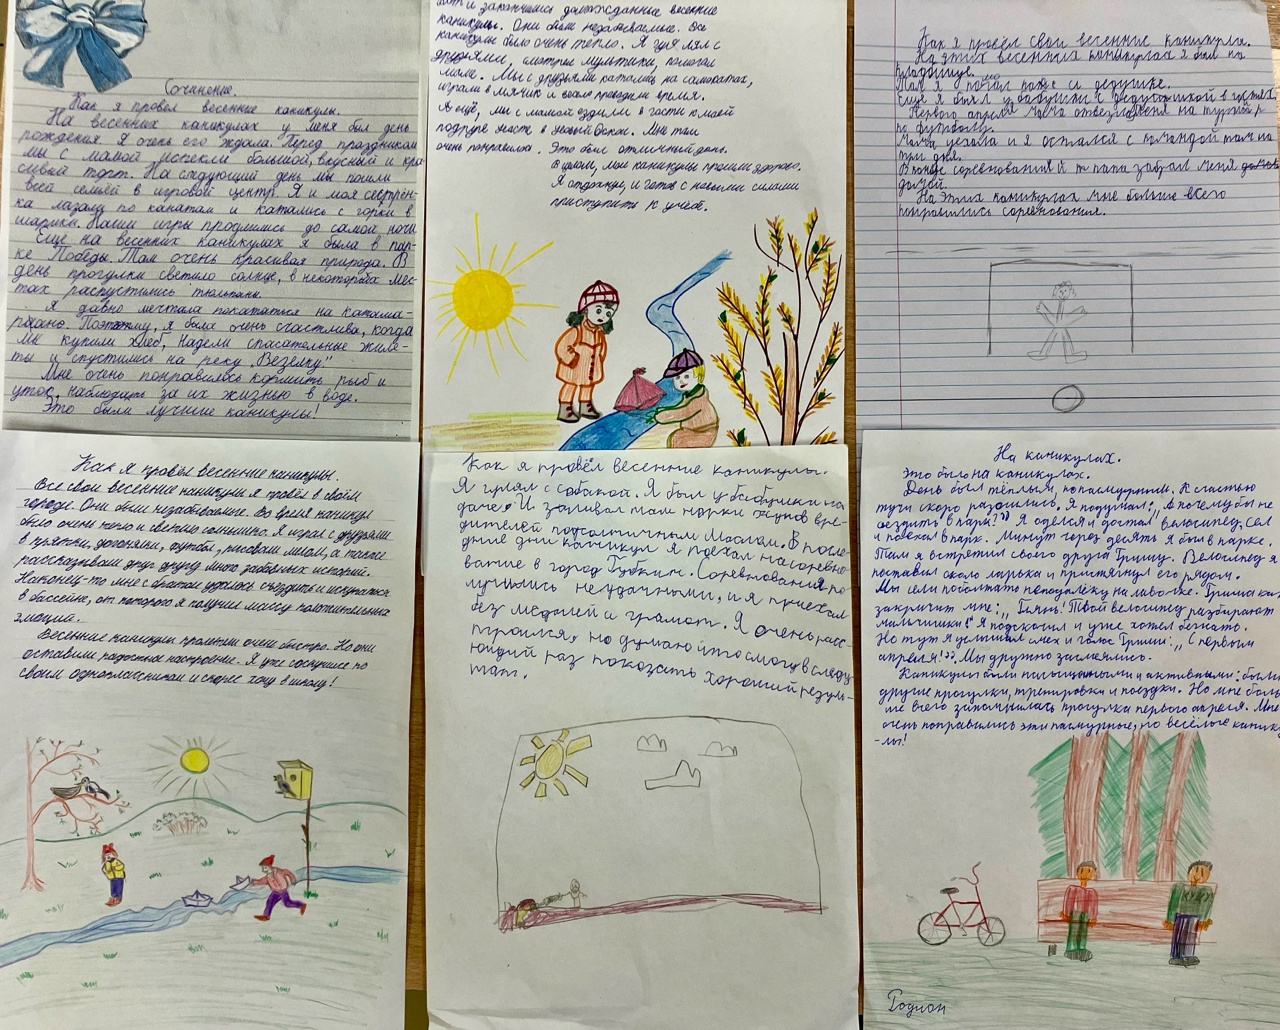 Сочинение.
Как я провел весенние каникулы.
На весенних каникулах у меня был день
рождения. Я очень его ждала. Перед праздником
мы с мамой испекли большой, вкусный и кра-
сивый торт. На следующий день мы пошли
всей семьёй в игровой центр. Я и моя сестрён-
ка лазали по канатам и катались с горки в
шарики. Наши игры продлились до самой ночи.
Ещё на весенних каникулах я была в пар-
ке Победы. Там очень красивая природа. В
день прогулки светило солнце, в некоторых мес-
тах распустились тюльпаны.
Я давно мечтала покататься на катама-
ране. Поэтому, я была очень счастлива, когда
мы купили хлеб, надели спасательные жиле-
ты и спустились на реку „Везелку".
Мне очень понравилось кормить рыб и
уток, наблюдать за их жизнью в воде.
Это были лучшие каникулы!
и закончились долгожданные весенние
каникулы. Они были незабываемые. Все
каникулы было очень тепло. Я гулял с
друзьями, смотрел мультики, помогал
маме. Мы с друзьями катались на самокатах,
играли в мячик и весело проводили время.
А ещё, мы с мамой ездили в гости к моей
подруге Насте в Новый Оскол. Мне там
очень понравилось. Это был отличный день.
В целом, мои каникулы прошли здорово.
Я отдохнул, и готов с новыми силами
приступить к учебе.
Как я провёл свои весенние каникулы.
На этих весенних каникулах я был на
кладбище.
Там я и дедушке.
Ещё я был у бабушки с дедушкой в гостях.
Первого апреля мама отвезла меня на турнир
по футболу.
Мама уехала и я остался с командой там на
три дня.
В конце соревнований папа забрал меня
домой.
На этих каникулах мне больше всего
понравились соревнования.
Как я провёл весенние каникулы.
Все свои весенние каникулы я провёл в своём
городе. Они были незабываемые. Во время каникул
было очень тепло и светило солнышко. Я играл с друзьями
в прятки, догонялки, футбол, рисовали мелом, а также
рассказывали друг другу много забавных историй.
Наконец-то мне с братом удалось съездить и искупаться
в бассейне, от которого я получил массу положительных
эмоций.
Весенние каникулы пролетели очень быстро. Но они
оставили радостное настроение. Я уже соскучился по
своим одноклассникам и скорее хочу в школу!
Как я провёл весенние каникулы.
Я гулял с собакой. Я был у бабушки на
даче. И заливал там норки жуков вре-
дителей подсолнечным маслом. В после-
дние дни каникул я поехал на соревно-
вание в город Губкин. Соревнования по-
лучились неудачными, и я приехал
без медалей и грамот. Я очень расс-
троился, но думаю что смогу в следу-
ющий раз показать хороший резуль-
тат.
На каникулах.
Это было на каникулах.
День был тёплым, но пасмурным. К счастью
тучи скоро разошлись. Я подумал: „А почему бы не
съездить в парк?" Я оделся и достал велосипед, сел
и поехал в парк. Минут через десять я был в парке.
Там я встретил своего друга Гришу. Велосипед я
поставил около ларька и притянул его рядом.
Мы сели поболтать неподалёку на лавочке. Гриша как
закричит мне: „Глянь! Твой велосипед разбирают
мальчишки!" Я подскочил и уже хотел бежать.
Но тут я услышал смех и голос Гриши: „С первым
апреля!" Мы дружно засмеялись.
Каникулы были насыщенными и активными: были
другие прогулки, тренировки и поездки. Но мне боль-
ше всего запомнилась прогулка первого апреля. Мне
очень понравились эти пасмурные, но весёлые канику-
-лы!
Родион